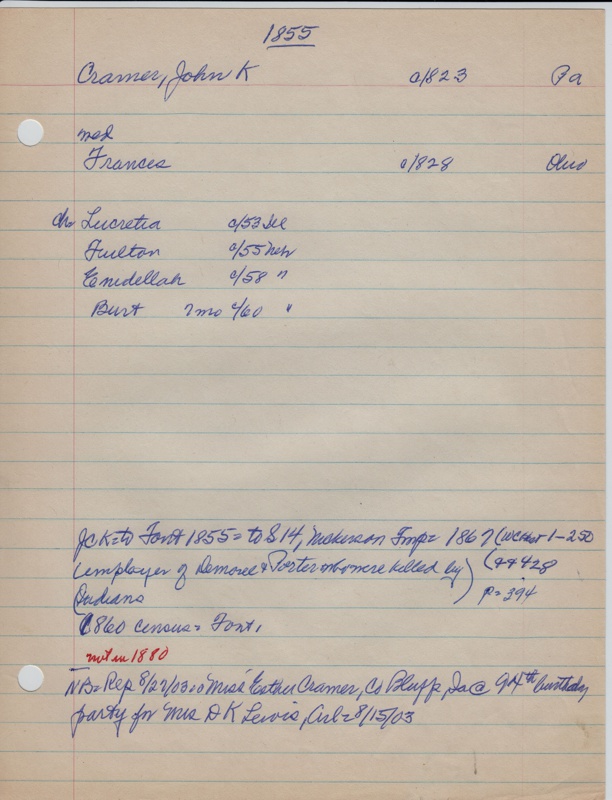 1855
Cramer, John K c/1823 Pa
med
Frances c/1828 Ohio
ch Lucretia c/53 Ill
Fulton c/55 Neb
Emdellah c/58 "
Burt 7mo c/60 "
JCK=to Font 1855= to S 14, Nickerson Twp= 1867 (WCHist 1-250
(employer of Demoree & Porter who were killed by) (A4428
Indians p=394
1860 census= Font,
not in 1880
NB=Rep 8/22/03= "Miss" Esther Cramer, Co Bluffs, Ia @ 94th birthday
party for Mrs D K Lewis, Arl=8/15/03